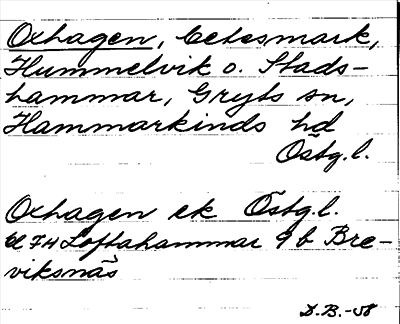 Oxhagen, betesmark,
Hummelvik o. Stads-
hammar, Gryts sn,
Hammarkinds hd
Östg.l.
Oxhagen ek Östg.l.
bl 7H Loftahammar 9b Bre-
viksnäs
D.B.-58